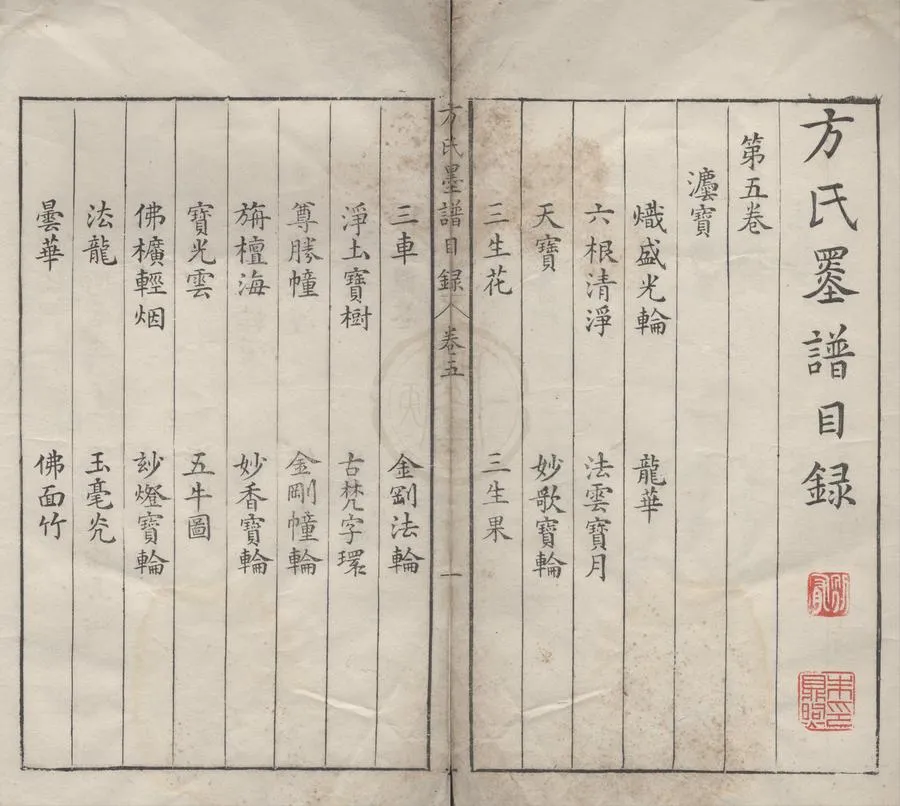 方氏墨譜目録
第五卷
瀍寶
熾盛光輪 龍華
六根清淨 法雲寶月
天寶 妙歌寶輪
三生花 三生果
方氏墨譜目録 卷五 一
三車 金剛法輪
淨土寶樹 古梵字環
尊勝幢 金剛幢輪
旃檀海 妙香寶輪
寶光雲 五牛圖
佛櫎輕烟 玅燈寶輪
法龍 玉毫光
曇華 佛面竹